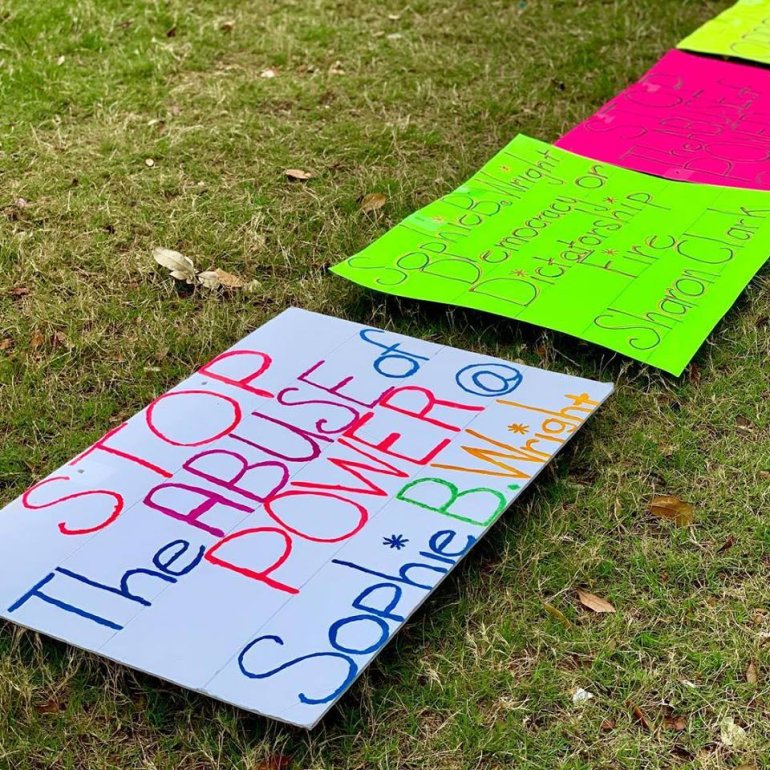 STOP
The ABUSE of
POWER @
Sophie B. Wright
Sophie B. Wright
Democracy or
Dictatorship
Fire
Sharon Clark
STOP